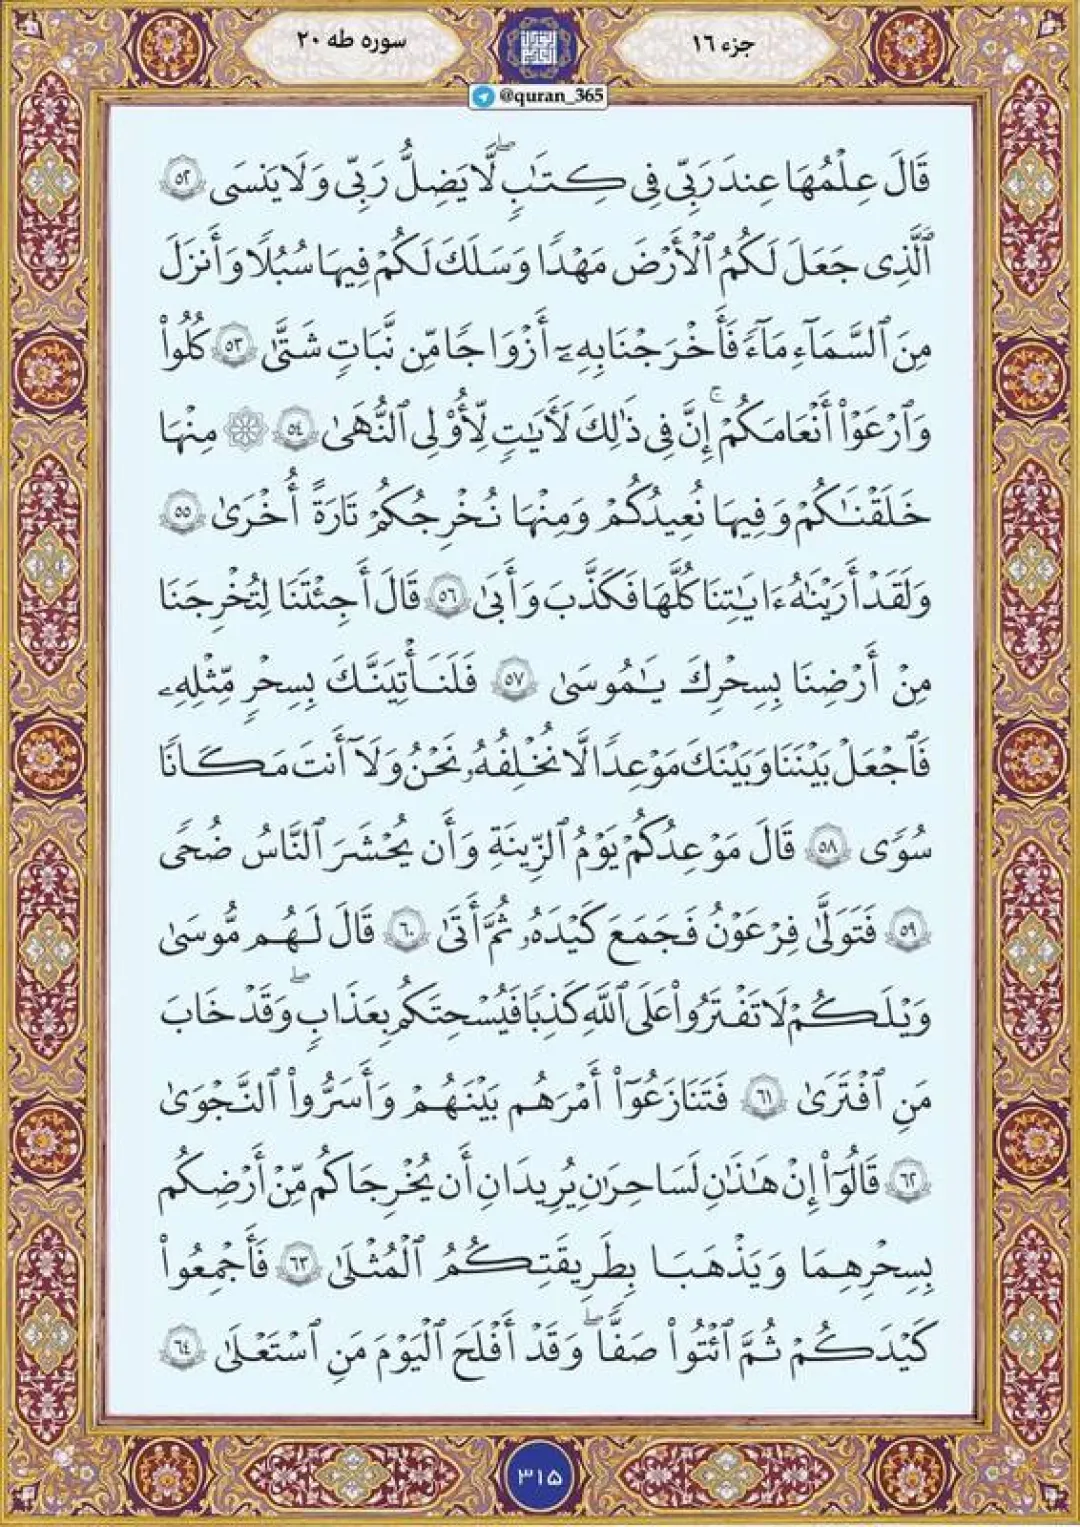 سوره طه ۲۰
جزء ۱۶
@quran_365
قَالَ عِلْمُهَا عِندَ رَبِّى فِى كِتَٰبٍ ۖ لَّا يَضِلُّ رَبِّى وَلَا يَنسَى ٥٢
ٱلَّذِى جَعَلَ لَكُمُ ٱلْأَرْضَ مَهْدًا وَسَلَكَ لَكُمْ فِيهَا سُبُلًا وَأَنزَلَ
مِنَ ٱلسَّمَآءِ مَآءً فَأَخْرَجْنَا بِهِۦٓ أَزْوَٰجًا مِّن نَّبَاتٍ شَتَّىٰ ٥٣ كُلُوا۟
وَٱرْعَوْا۟ أَنْعَٰمَكُمْ ۗ إِنَّ فِى ذَٰلِكَ لَءَايَٰتٍ لِّأُو۟لِى ٱلنُّهَىٰ ٥٤ ۞ مِنْهَا
خَلَقْنَٰكُمْ وَفِيهَا نُعِيدُكُمْ وَمِنْهَا نُخْرِجُكُمْ تَارَةً أُخْرَىٰ ٥٥
وَلَقَدْ أَرَيْنَٰهُ ءَايَٰتِنَا كُلَّهَا فَكَذَّبَ وَأَبَىٰ ٥٦ قَالَ أَجِئْتَنَا لِتُخْرِجَنَا
مِنْ أَرْضِنَا بِسِحْرِكَ يَٰمُوسَىٰ ٥٧ فَلَنَأْتِيَنَّكَ بِسِحْرٍ مِّثْلِهِۦ
فَٱجْعَلْ بَيْنَنَا وَبَيْنَكَ مَوْعِدًا لَّا نُخْلِفُهُۥ نَحْنُ وَلَآ أَنتَ مَكَانًا
سُوًى ٥٨ قَالَ مَوْعِدُكُمْ يَوْمُ ٱلزِّينَةِ وَأَن يُحْشَرَ ٱلنَّاسُ ضُحًى
٥٩ فَتَوَلَّىٰ فِرْعَوْنُ فَجَمَعَ كَيْدَهُۥ ثُمَّ أَتَىٰ ٦٠ قَالَ لَهُم مُّوسَىٰ
وَيْلَكُمْ لَا تَفْتَرُوا۟ عَلَى ٱللَّهِ كَذِبًا فَيُسْحِتَكُم بِعَذَابٍ ۖ وَقَدْ خَابَ
مَنِ ٱفْتَرَىٰ ٦١ فَتَنَٰزَعُوٓا۟ أَمْرَهُم بَيْنَهُمْ وَأَسَرُّوا۟ ٱلنَّجْوَىٰ
٦٢ قَالُوٓا۟ إِنْ هَٰذَٰنِ لَسَٰحِرَٰنِ يُرِيدَانِ أَن يُخْرِجَاكُم مِّنْ أَرْضِكُم
بِسِحْرِهِمَا وَيَذْهَبَا بِطَرِيقَتِكُمُ ٱلْمُثْلَىٰ ٦٣ فَأَجْمِعُوا۟
كَيْدَكُمْ ثُمَّ ٱئْتُوا۟ صَفًّا ۖ وَقَدْ أَفْلَحَ ٱلْيَوْمَ مَنِ ٱسْتَعْلَىٰ ٦٤
۳۱۵